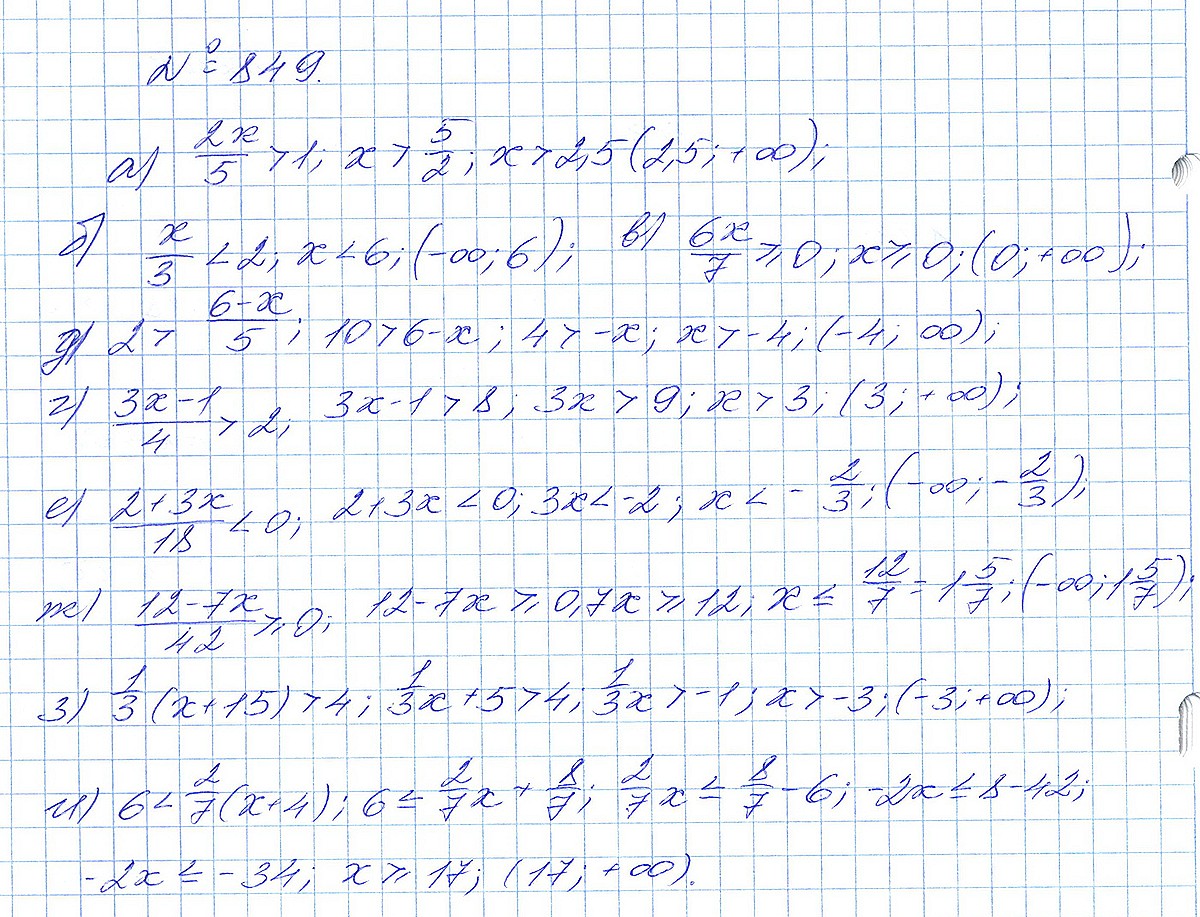 № 849.
а) 2x/5 > 1; x > 5/2; x > 2,5 (2,5; +∞);
б) x/3 < 2; x < 6; (-∞; 6); в) 6x/7 ⩾ 0; x ⩾ 0; (0; +∞);
д) 2 > (6-x)/5; 10 > 6-x; 4 > -x; x > -4; (-4; ∞);
г) (3x-1)/4 > 2; 3x-1 > 8; 3x > 9; x > 3; (3; +∞);
е) (2+3x)/18 < 0; 2+3x < 0; 3x < -2; x < -2/3; (-∞; -2/3);
ж) (12-7x)/42 ⩾ 0; 12-7x ⩾ 0, 7x ⩾ 12; x ≤ 12/7 = 1 5/7; (-∞; 1 5/7);
з) 1/3 (x+15) > 4; 1/3 x + 5 > 4; 1/3 x > -1; x > -3; (-3; +∞);
и) 6 < 2/7 (x+4); 6 ≤ 2/7 x + 8/7; 2/7 x ≤ 8/7 - 6; -2x ≤ 8-42;
-2x ≤ -34; x ⩾ 17; (17; +∞).